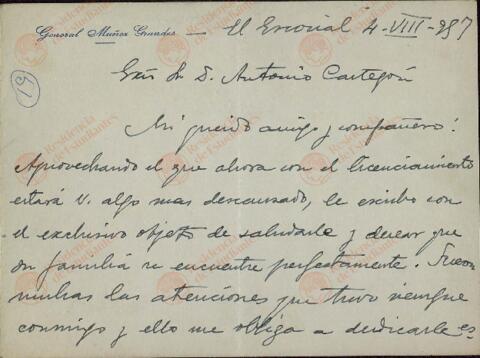 General Muñoz Grandes — El Escorial 4-VIII-957
51
Exmo Sr D. Antonio Castejón
Mi querido amigo y compañero:
Aprovechando el que ahora con el licenciamiento
estará V. algo mas descansado, le escribo con
el exclusivo objeto de saludarle y desear que
su familia se encuentre perfectamente. Fueron
muchas las atenciones que tuvo siempre
conmigo y ello me obliga a dedicarle es-
Residencia de Estudiantes